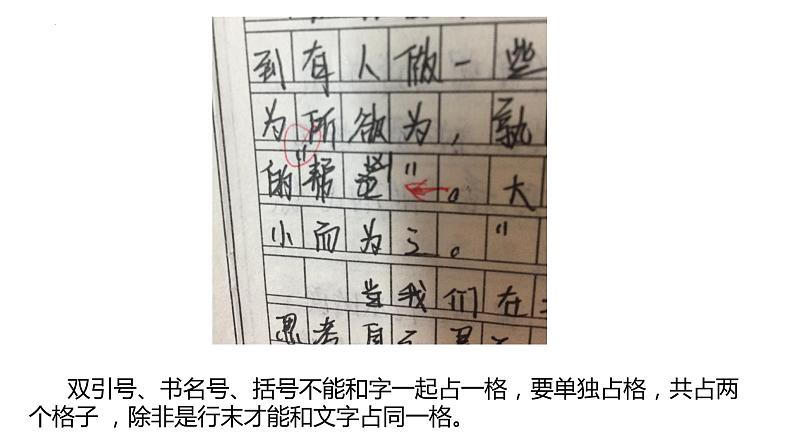 到有人做一些
为所欲为，孰
的“帮凶”。大
小而为之。”
当我们在
思考自己是
双引号、书名号、括号不能和字一起占一格，要单独占格，共占两
个格子 ，除非是行末才能和文字占同一格。